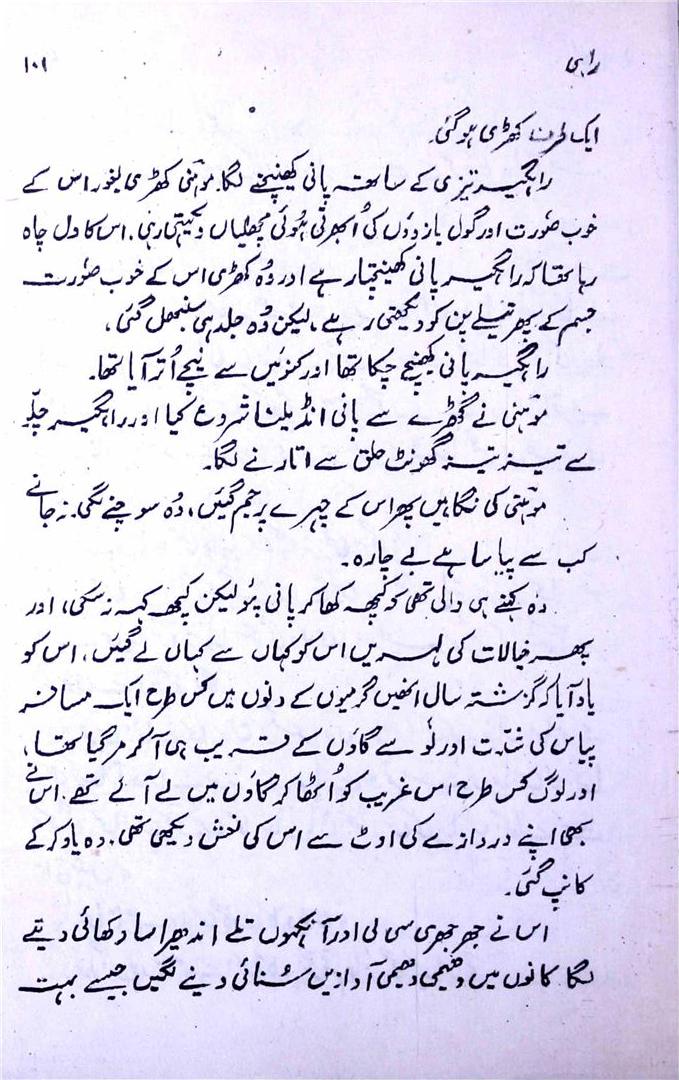 راہی ۱۰۹
ایک طرف کھڑی ہو گئی۔
راہگیر تیزی کے ساتھ پانی کھینچنے لگا۔ موہنی کھڑی بغور اس کے
خوب صورت اور گول بازوؤں کی اُبھرتی ہُوئی مچھلیاں دیکھتی رہی۔ اس کا دل چاہ
رہا تھا کہ راہگیر پانی کھینچتا رہے اور وُہ کھڑی اس کے خوب صورت
جسم کے پھرتیلے پن کو دیکھتی رہے، لیکن وُہ جلد ہی سنبھل گئی،
راہگیر پانی کھینچ چکا تھا اور کنوئیں سے نیچے اُتر آیا تھا۔
موہنی نے گھڑے سے پانی انڈیلنا شروع کیا اور راہگیر چلّو
سے تیز تیز گھونٹ حلق سے اتارنے لگا۔
موہنی کی نگاہیں پھر اس کے چہرے پر جم گئیں، وُہ سوچنے لگی۔ نہ جانے
کب سے پیاسا ہے بے چارہ۔
وہ کہنے ہی والی تھی کہ کچھ کھا کر پانی پئو لیکن کچھ کہہ نہ سکی، اور
پھر خیالات کی لہریں اس کو کہاں سے کہاں لے گئیں، اس کو
یاد آیا کہ گزشتہ سال انھیں گرمیوں کے دنوں میں کس طرح ایک مسافر
پیاس کی شدّت اور لُو سے گاؤں کے قریب ہی آکر مر گیا تھا،
اور لوگ کس طرح اس غریب کو اُٹھا کر گاؤں میں لے آئے تھے۔ اس نے
بھی اپنے دروازے کی اوٹ سے اس کی نعش دیکھی تھی۔ وہ یاد کر کے
کانپ گئی۔
اس نے جھرجھری سی لی اور آنکھوں تلے اندھیرا سا دکھائی دینے
لگا کانوں میں دھیمی دھیمی آوازیں سُنائی دینے لگیں جیسے بہت